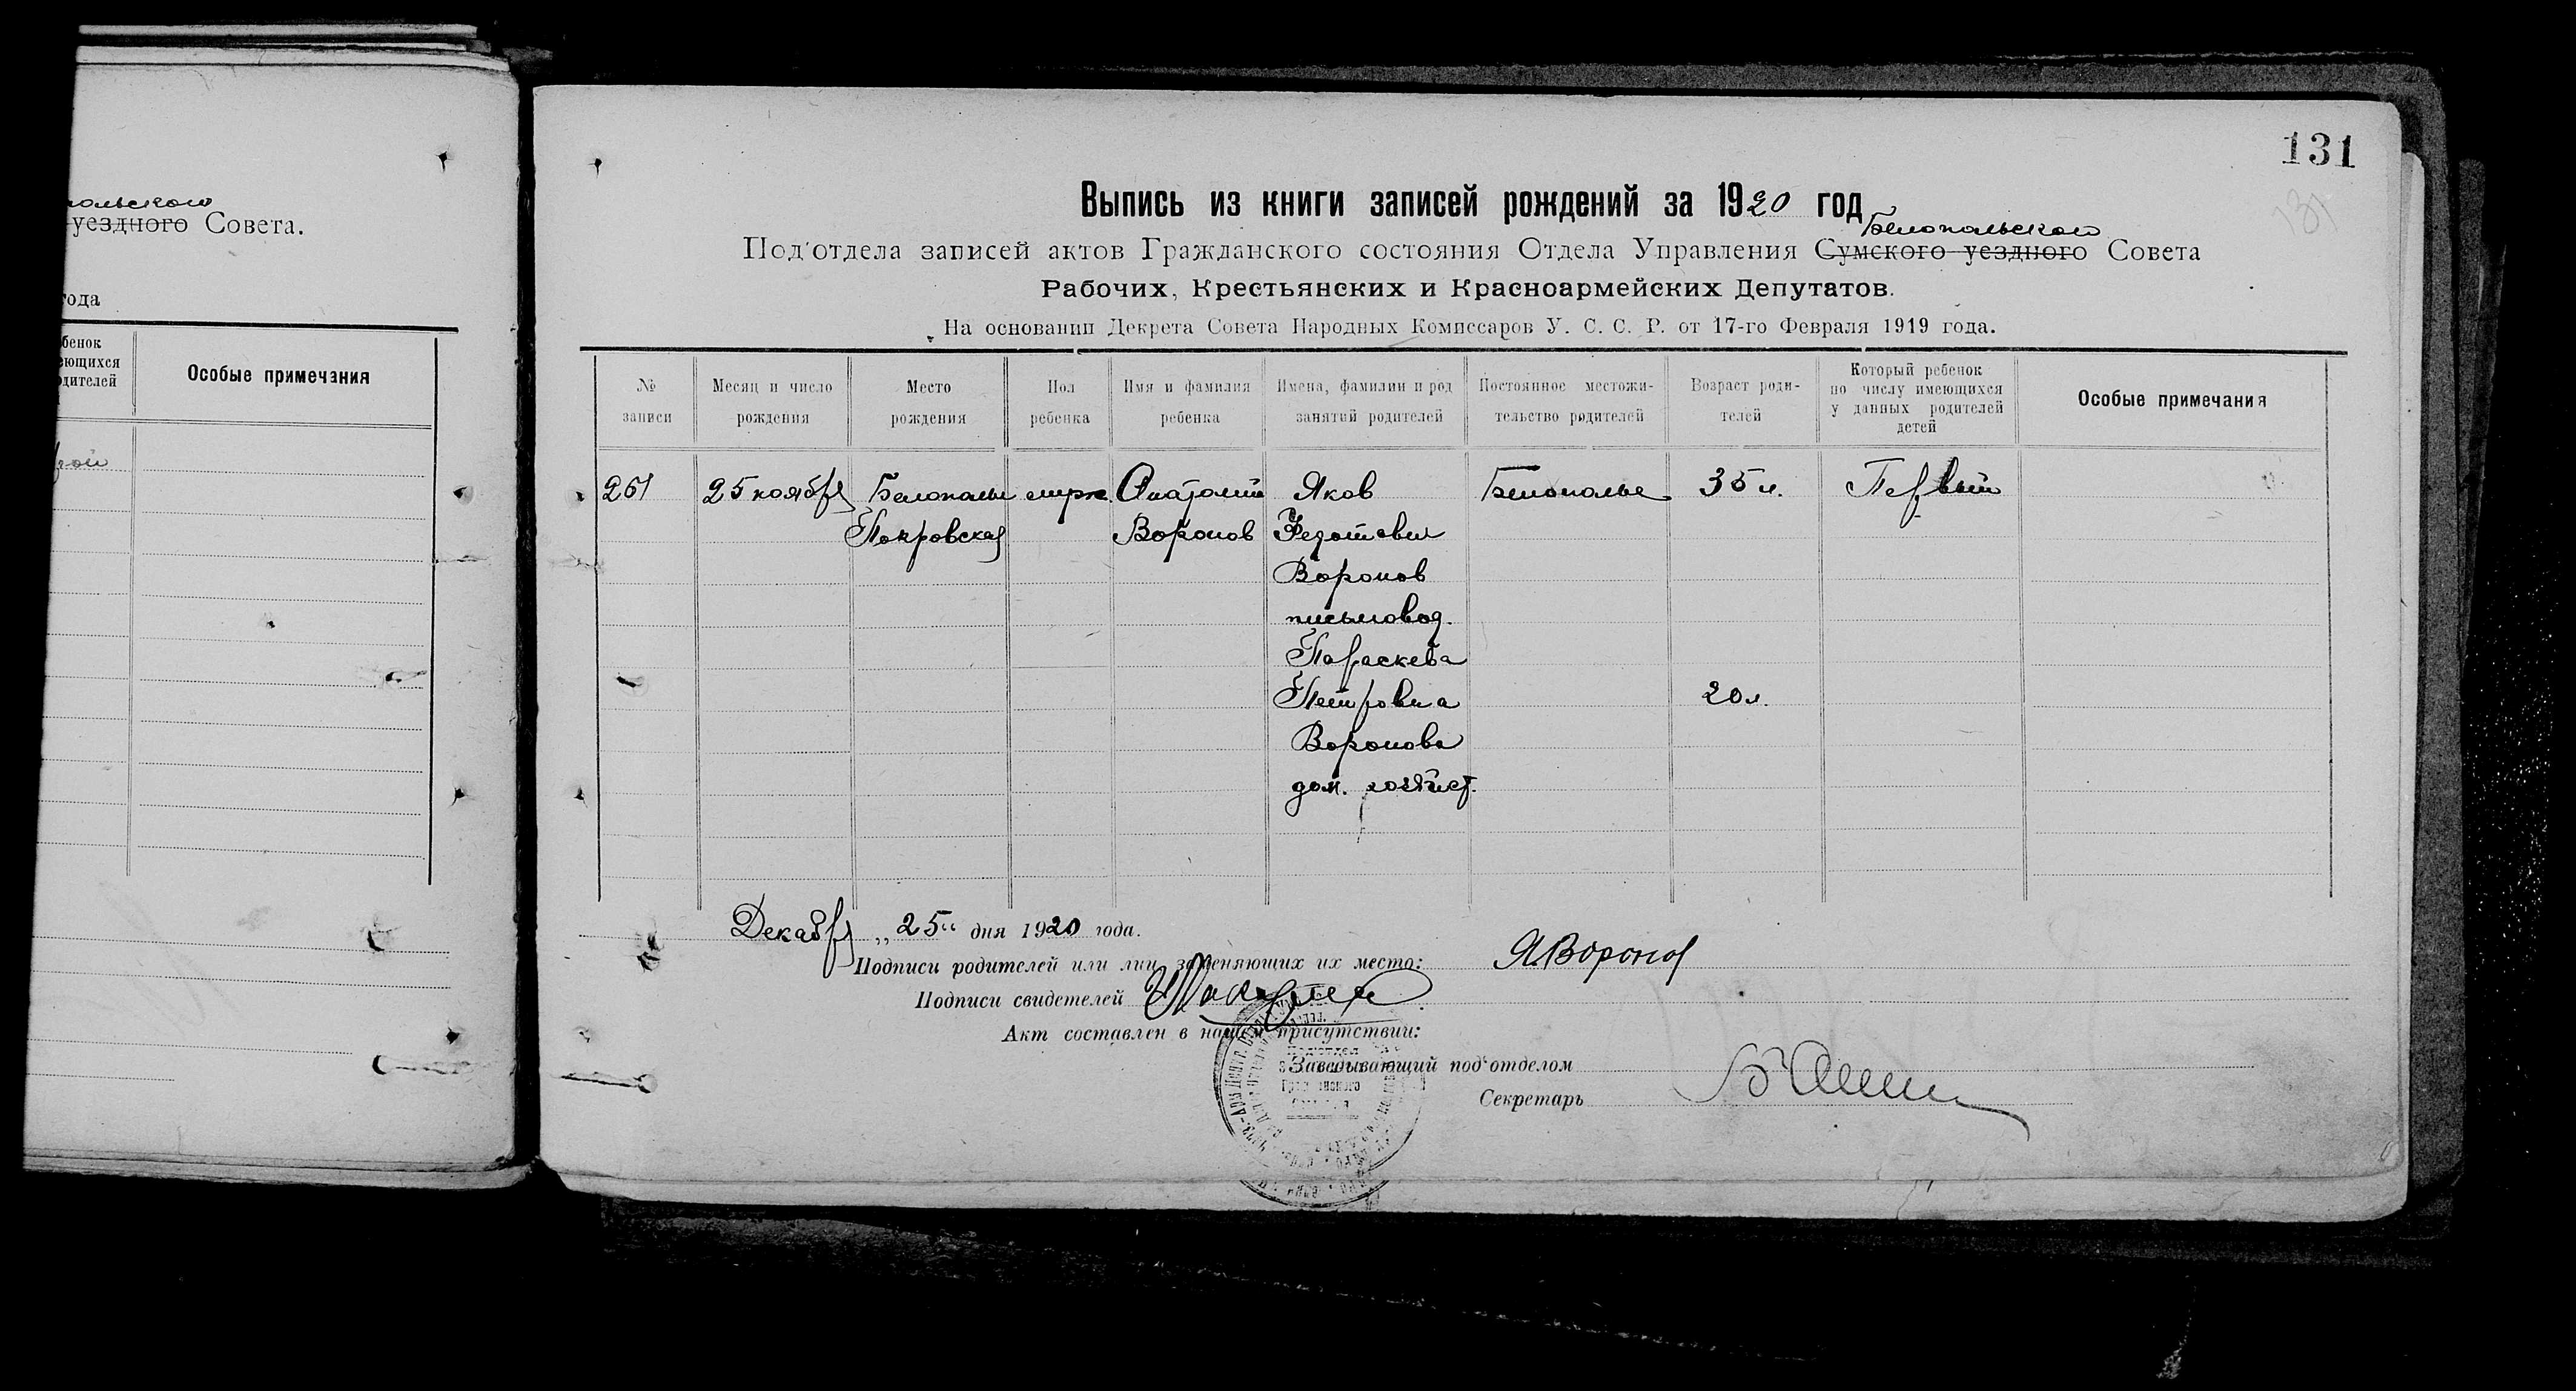 польского
уездного Совета.
года
бенок
еющихся
одителей
Особые примечания
131
131
Выпись из книги записей рождений за 1920 год
Белопольского
Под'отдела записей актов Гражданского состояния Отдела Управления Сумского уездного Совета
Рабочих, Крестьянских и Красноармейских Депутатов.
На основании Декрета Совета Народных Комиссаров У. С. С. Р. от 17-го Февраля 1919 года.
№ записи
Месяц и число рождения
Место рождения
Пол ребенка
Имя и фамилия ребенка
Имена, фамилии и род занятий родителей
Постоянное местожительство родителей
Возраст родителей
Который ребенок по числу имеющихся у данных родителей детей
Особые примечания
261 25 ноября Белополье Анатолий Яков Белополье 35 л. Первый
Покровская Воронов Федотович
Воронов
письмовод.
Параскева
Петровна 20 л.
Воронова
дом. хозяйст.
Декабря „25“ дня 1920 года.
Подписи родителей или лиц заменяющих их место: Я.Воронов
Подписи свидетелей
Акт составлен в нашем присутствии:
Заведывающий под'отделом
Секретарь